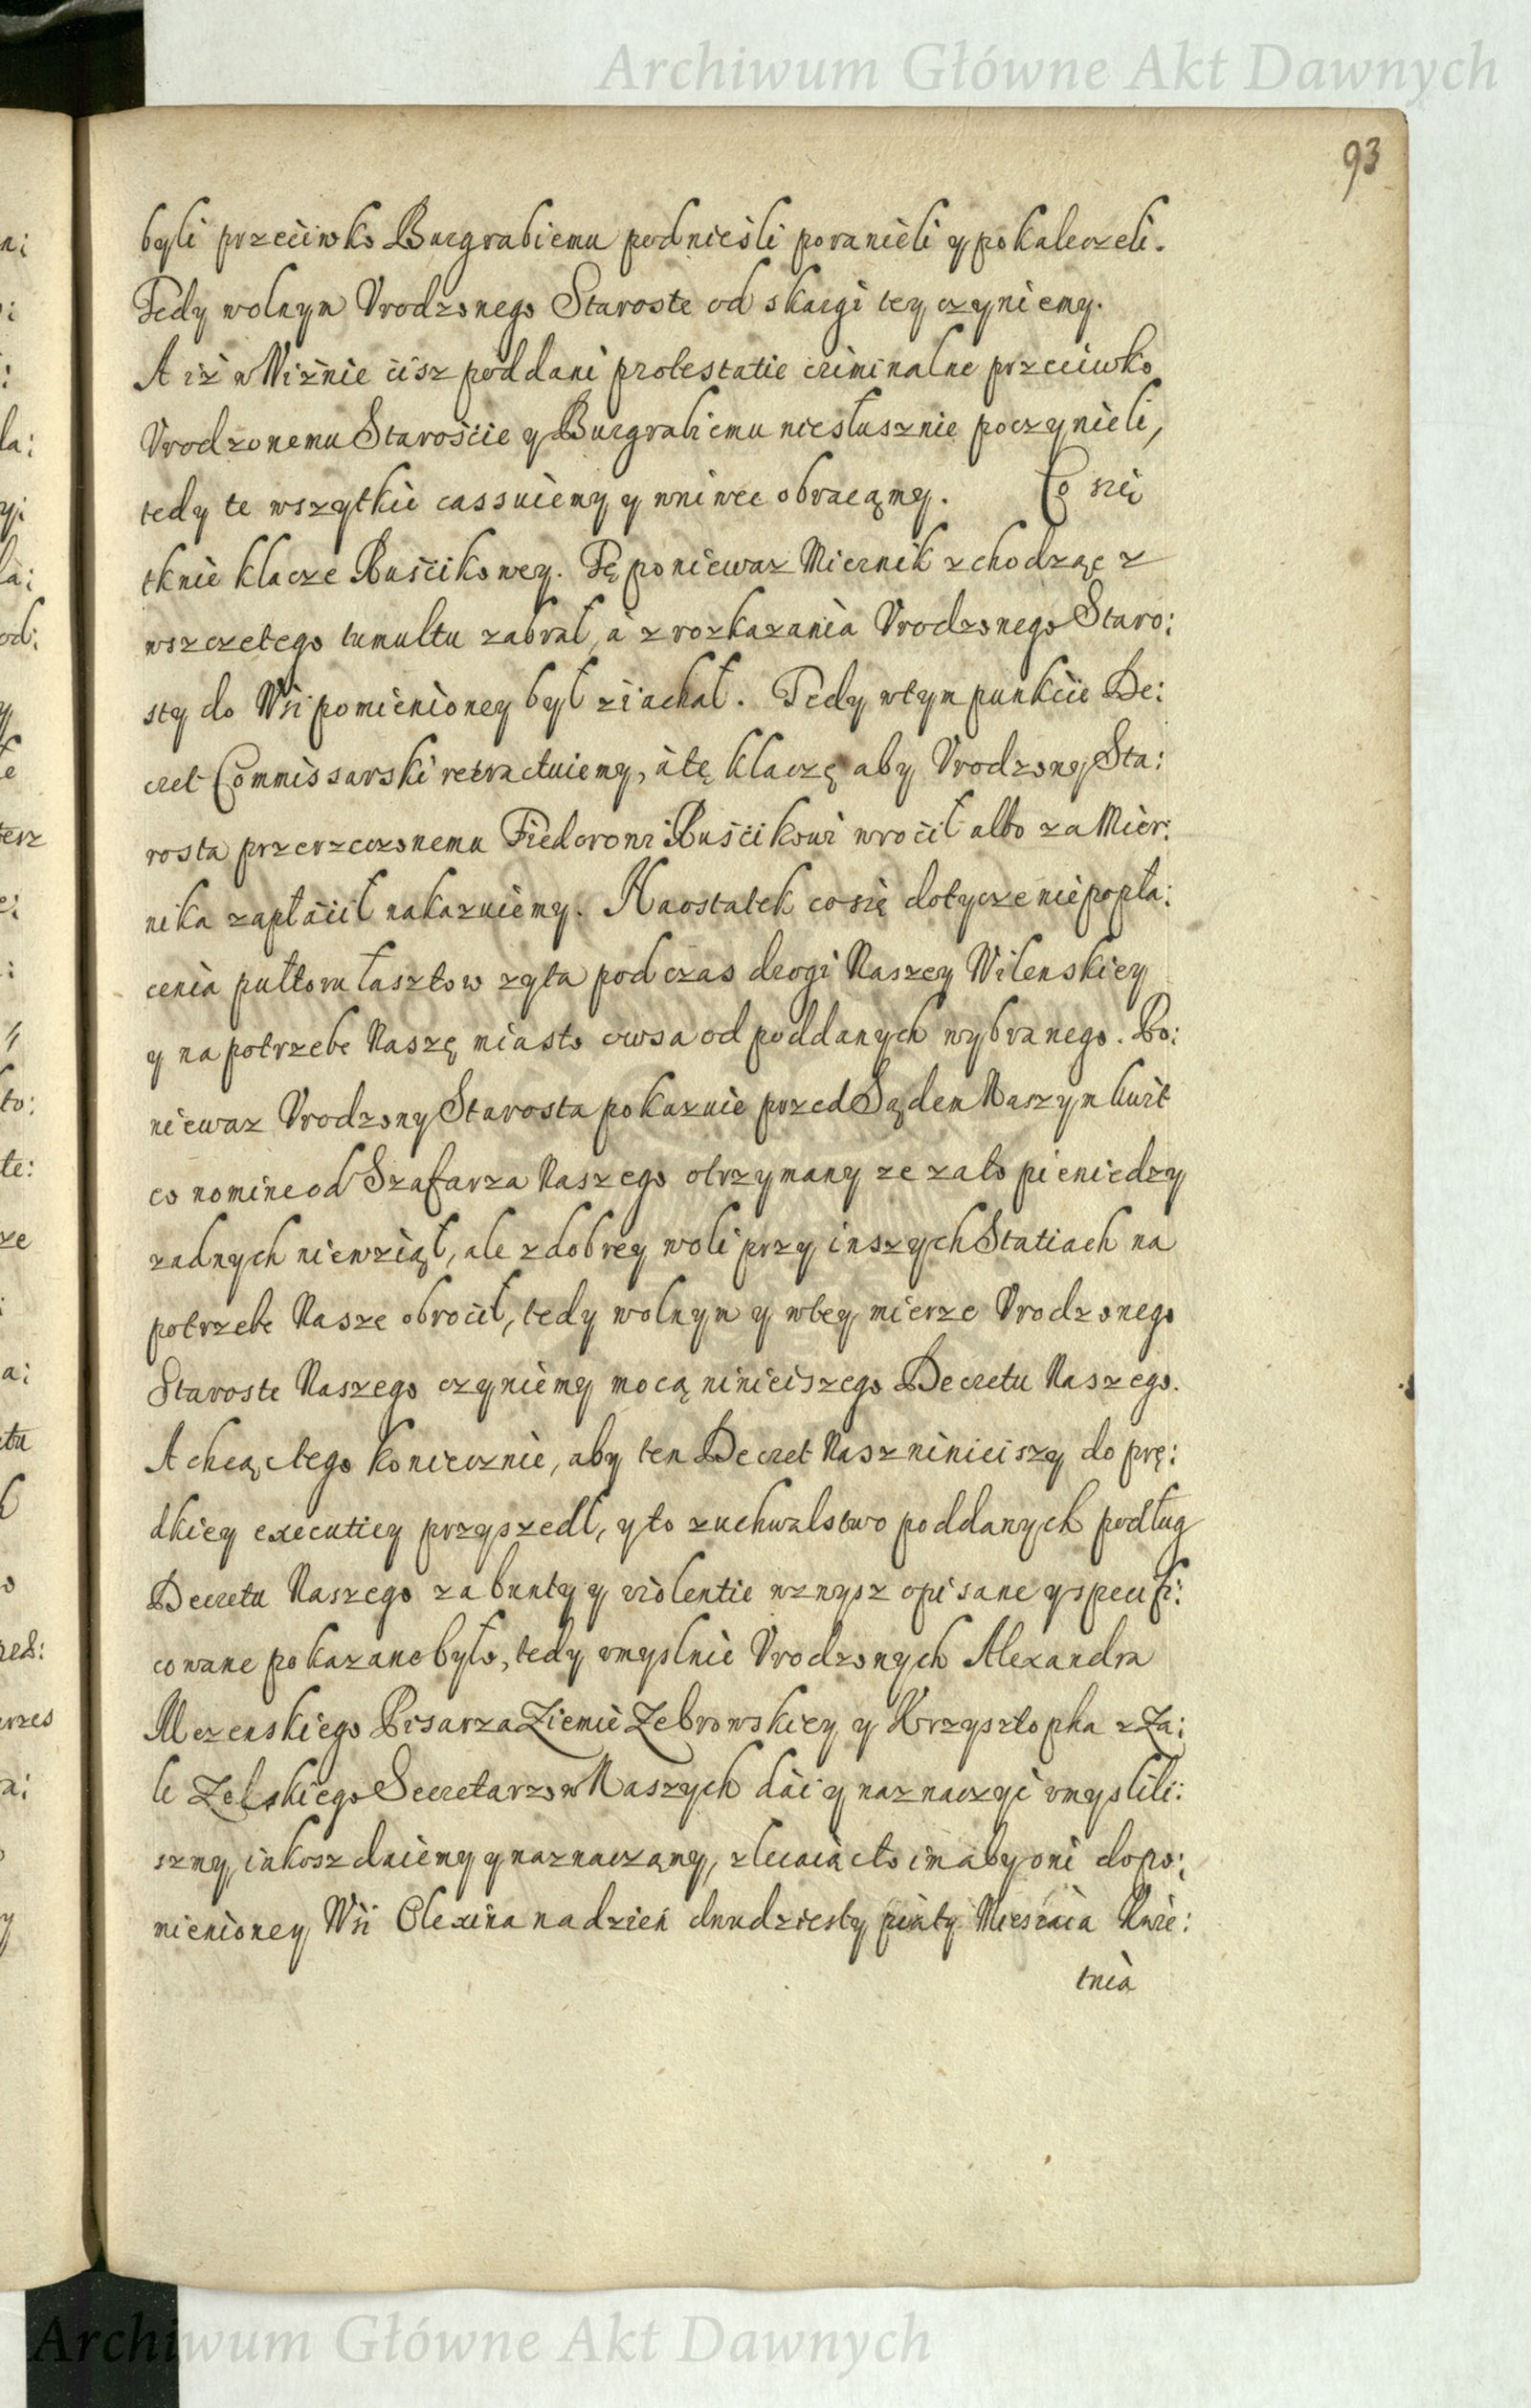 Archiwum Główne Akt Dawnych
93
byli przeciwko Burgrabiemu podnieśli poranieli y pokaleczeli.
Tedy wolnym Vrodzonego Staroste od skargi tey czyniemy.
A iż w Wiźnie cisz poddani protestatie criminalne przeciwko
Vrodzonemu Staroście y Burgrabiemu niesłusznie poczynieli,
tedy te wszytkie cassuiemy y wniwec obracąmy. Co się
tknie klacze Ruścikowey. Tę poniewasz Miernik zchodząc z
wszczetego tumultu zabrał, a z rozkazania Vrodzonego Staro:
sty do Wśi pomienioney był ziachał. Tedy wtym punkcie De:
cret Commissarski retractuiemy, a tę klaczę aby Vrodzony Sta:
rosta przerzeczonemu Fiedorowi Ruścikowi wrocił albo za Mier:
nika zapłacił nakazuiemy. Naostatek co się dotycze niepopła:
cenia pułtoru łasztow zyta podczas drogi Naszey Wilenskiey
y na potrzebe Naszę miasto owsa od poddanych wybranego. Po:
niewaz Vrodzony Starosta pokazuie przed Sądem Naszym kwit
eo nomine od Szafarza Naszego otrzymany ze zato pieniedzy
zadnych niewziął, ale z dobrey woli przy inszych Statiach na
potrzebe Nasze obrocił, tedy wolnym y wtey mierze Vrodzonego
Staroste Naszego czyniemy mocą ninieiszego Decretu Naszego.
A chcąc tego koniecznie, aby ten Decret Nasz ninieiszy do prę:
dkiey executiey przyszedł, y to zuchwalstwo poddanych podług
Decretu Naszego za bunty y violentie wznysz opisane y specifi:
cowane pokazane było, tedy vmyslnie Vrodzonych Alexandra
Mezenskiego Pisarza Ziemie Zebrowskiey y Krzysztopha z Za:
le Zelskiego Secretarzow Naszych dac y naznaczyc vmyslili:
szmy, iakosz daiemy y naznaczamy, zlecaiąc to im aby oni do po:
mienioney Wśi Olexina na dzień dwudziesty piąty Miesiaca Kwie:
tnia
Archiwum Główne Akt Dawnych